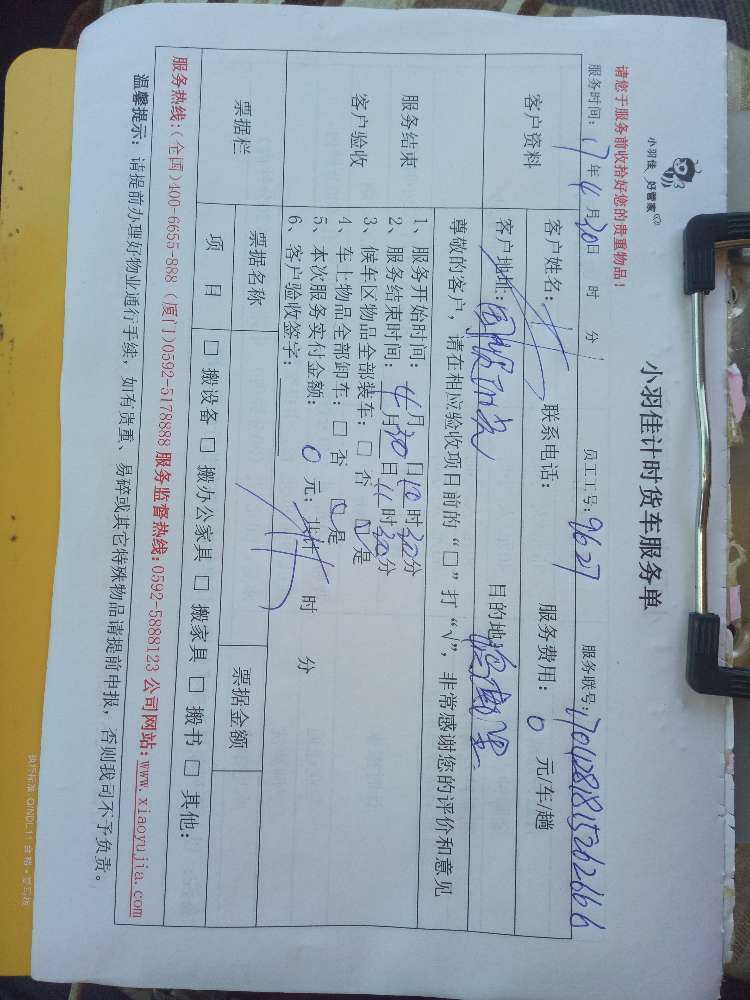 小羽佳 好管家
小羽佳计时货车服务单
请您于服务前收拾好您的贵重物品！
服务时间：17年4月30日 时 分 员工工号：9627 服务联号：17042818152626666
客户资料
客户姓名： 联系电话： 服务费用：0 元/车/趟
客户地址： 目的地
服务结束
客户验收
尊敬的客户，请在相应验收项目前的“□”打“√”，非常感谢您的评价和意见
1、服务开始时间：4月30日10时30分
2、服务结束时间：4月30日11时30分
3、候车区物品全部装车：□ 否 □是
4、车上物品全部卸车：□ 否 □是
5、本次服务实付金额： 0 元；共计 时 分
6、客户验收签字：
票据栏
票据名称 票据金额
项 目 □ 搬设备 □ 搬办公家具 □ 搬家具 □ 搬书 □ 其他：
服务热线:(全国)400-6655-888 (厦门)0592-5178888 服务监督热线:0592-5888123 公司网站:www.xiaoyujia.com
温馨提示：请提前办理好物业通行手续，如有贵重、易碎或其它特殊物品请提前申报，否则我司不予负责。